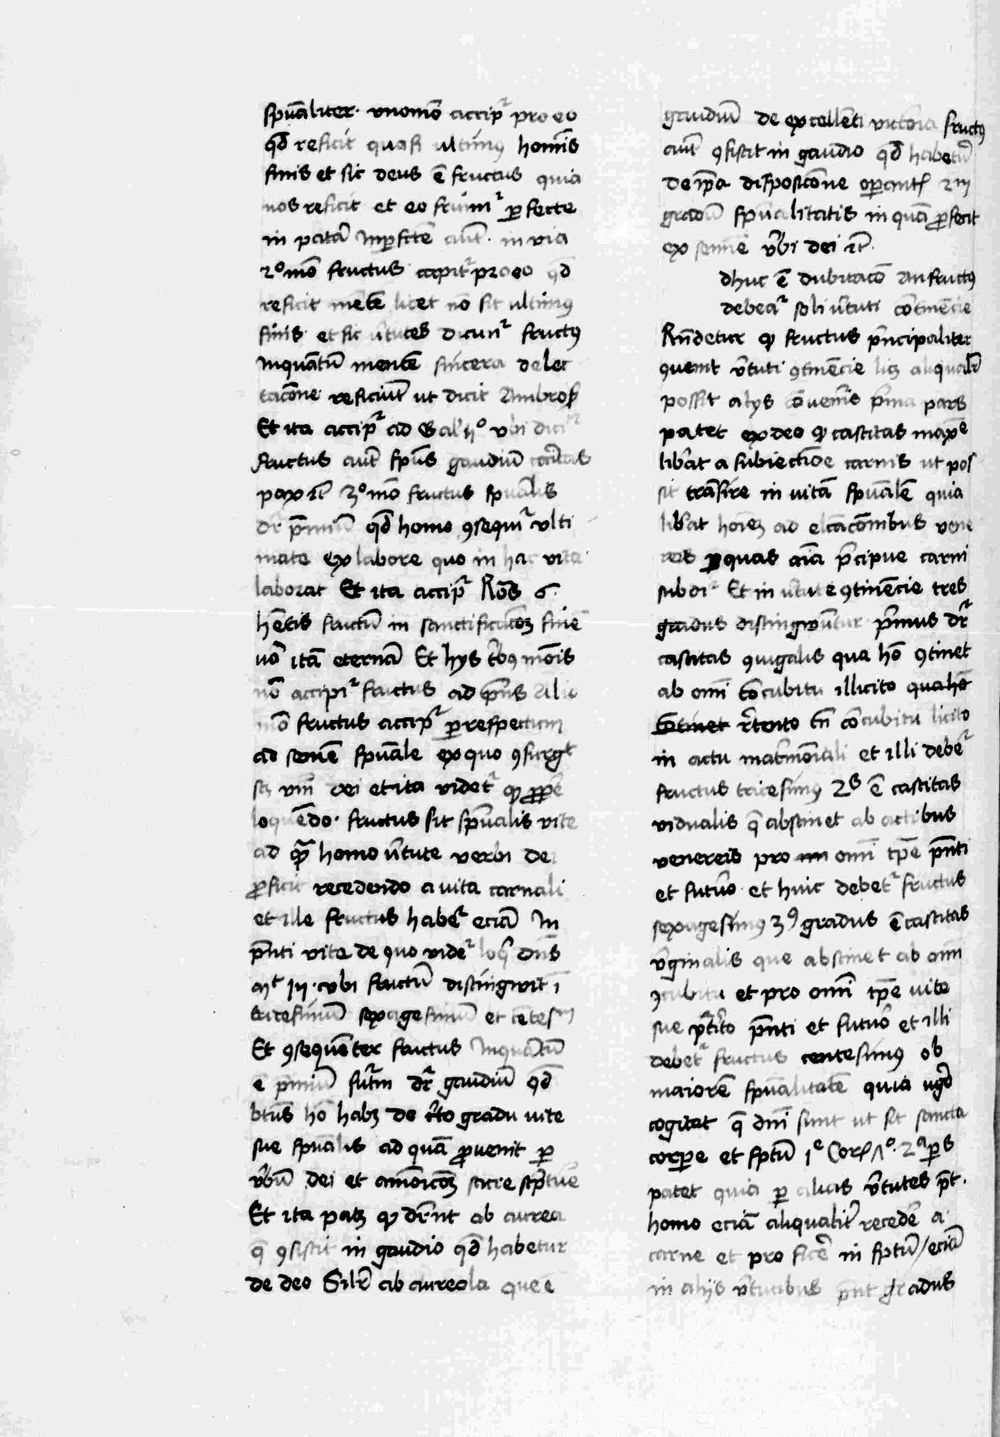 spūaliter · unomō accipr̄ pro eo
qd̄ reficit quasi ultimus homīs
finis et sic deus ē fructus quia
nos reficit et eo fruimr̄ perfecte
in patā Imp̄fcte aūt · in via
2º mō fructus capitr̄ pro eo qd̄
reficit mētē licet nō sit ultimus
finis et sic v̄tutes dicunr̄ fructus
Inquātū mentē sincera delec
tacōne reficiūt ut dicit Ambros
Et ita accipr̄ ad Gal' vbi dicir̄
fructus aūt spūs gaudiū cāritas
pax rc̄ 3º mō fructus spūalis
dr̄ p̄miū qd̄ homo 9sequir̄ ulti
mate ex labore quo in hac vita
laborat Et ita accipr̄ Rōs 6.
hētis fructū in sanctificacōeȝ finē
uō itā eternā Et hys tribȝ mōis
nō accipir̄ fructus ad p̄ns Alio
mō fructus accipr̄ per respectum
ad semē spūale ex quo 9surgit
sȝ vm̄ dei et ita videtr̄ qȝ prop̄e
loquēdo · fructus sit sp̄ualis vite
ad quā homo v̄tute verbi dei
proficit recedendo a vita carnali
et ille fructus haber̄ eciā In
p̄nti vita de quo vider̄ loq̄ dn̄s
Mt 13 · vbi fructū distingwit ī
tricesimū sexagesimū et cētesm̄
Et 9sequēter fructus Inquātū
ē p̄miū sūtm̄ dr̄ gaudiū qd̄
btūs hō habȝ de c̄to gradu vite
sue spūalis ad quā provenit per
v̄bū dei et amōicōeȝ sacre sc̄ptūe
Et ita patȝ qȝ dr̄nt ab aurea
q̄ 9sistit in gaudio qd̄ habetur
de deo Silr̄ ab aureola que ē
gaudiū de excellēti victoria fructus
aūt 9sistit in gaudio qd̄ habetur
de ip̄a disposicōne operantis 2m
gradū spūalitatis in quā proficit
ex semīe v̄bi dei rc̄
dhuc ē dubitacō An fructus
debear̄ soli v̄tuti cōtinēcie
Rn̄detur qȝ fructus p̄ncipaliter
9uenit v̄tuti 9tinēcie licȝ aliqualr̄
possit alys cōvenire p̄ma pars
patet ex deo qȝ castitas maxē
lib̄at a subiectiōe carnis ut pos
sit trāsire in vitā spūalē quia
lib̄at hoīeȝ ad elcācōnibus vene
reis per quas aīa p̄cipue carni
subdir̄ Et in v̄tute 9tinēcie tres
gradus distingwūtur p̄mus dr̄
castitas 9iugalis qua hō 9tinet
ab omī cōcubitu illicito qua hō
9tinet r̄tento tn̄ cōcubitu licito
in actu mat̄mōiali et illi deber̄
fructus tricesimȝ 2s ē castitas
vidualis q̄ abstinet ab actibus
venereis pro omī tp̄e p̄nti
et futūo et huic debetr̄ fructus
sexagesimȝ 3ȝ gradus ē castitas
v̄ginalis que abstinet ab omī
9cubitu et pro omī tp̄e vite
sue p̄t̄ito p̄nti et futūo et illi
debetr̄ fructus centesimȝ ob
maiorē spūalitatē quia v̄go
cogitat q̄ dn̄i sunt ut sit sancta
corpore et sp̄tū 1e Cor 7º · 2a pars
patet quia per alias v̄tutes pt̄ ·
homo eciā aliqualiter recedē a
carne et proficē in sp̄tū / eciā
in alijs v̄tutibus p̄nt gradus